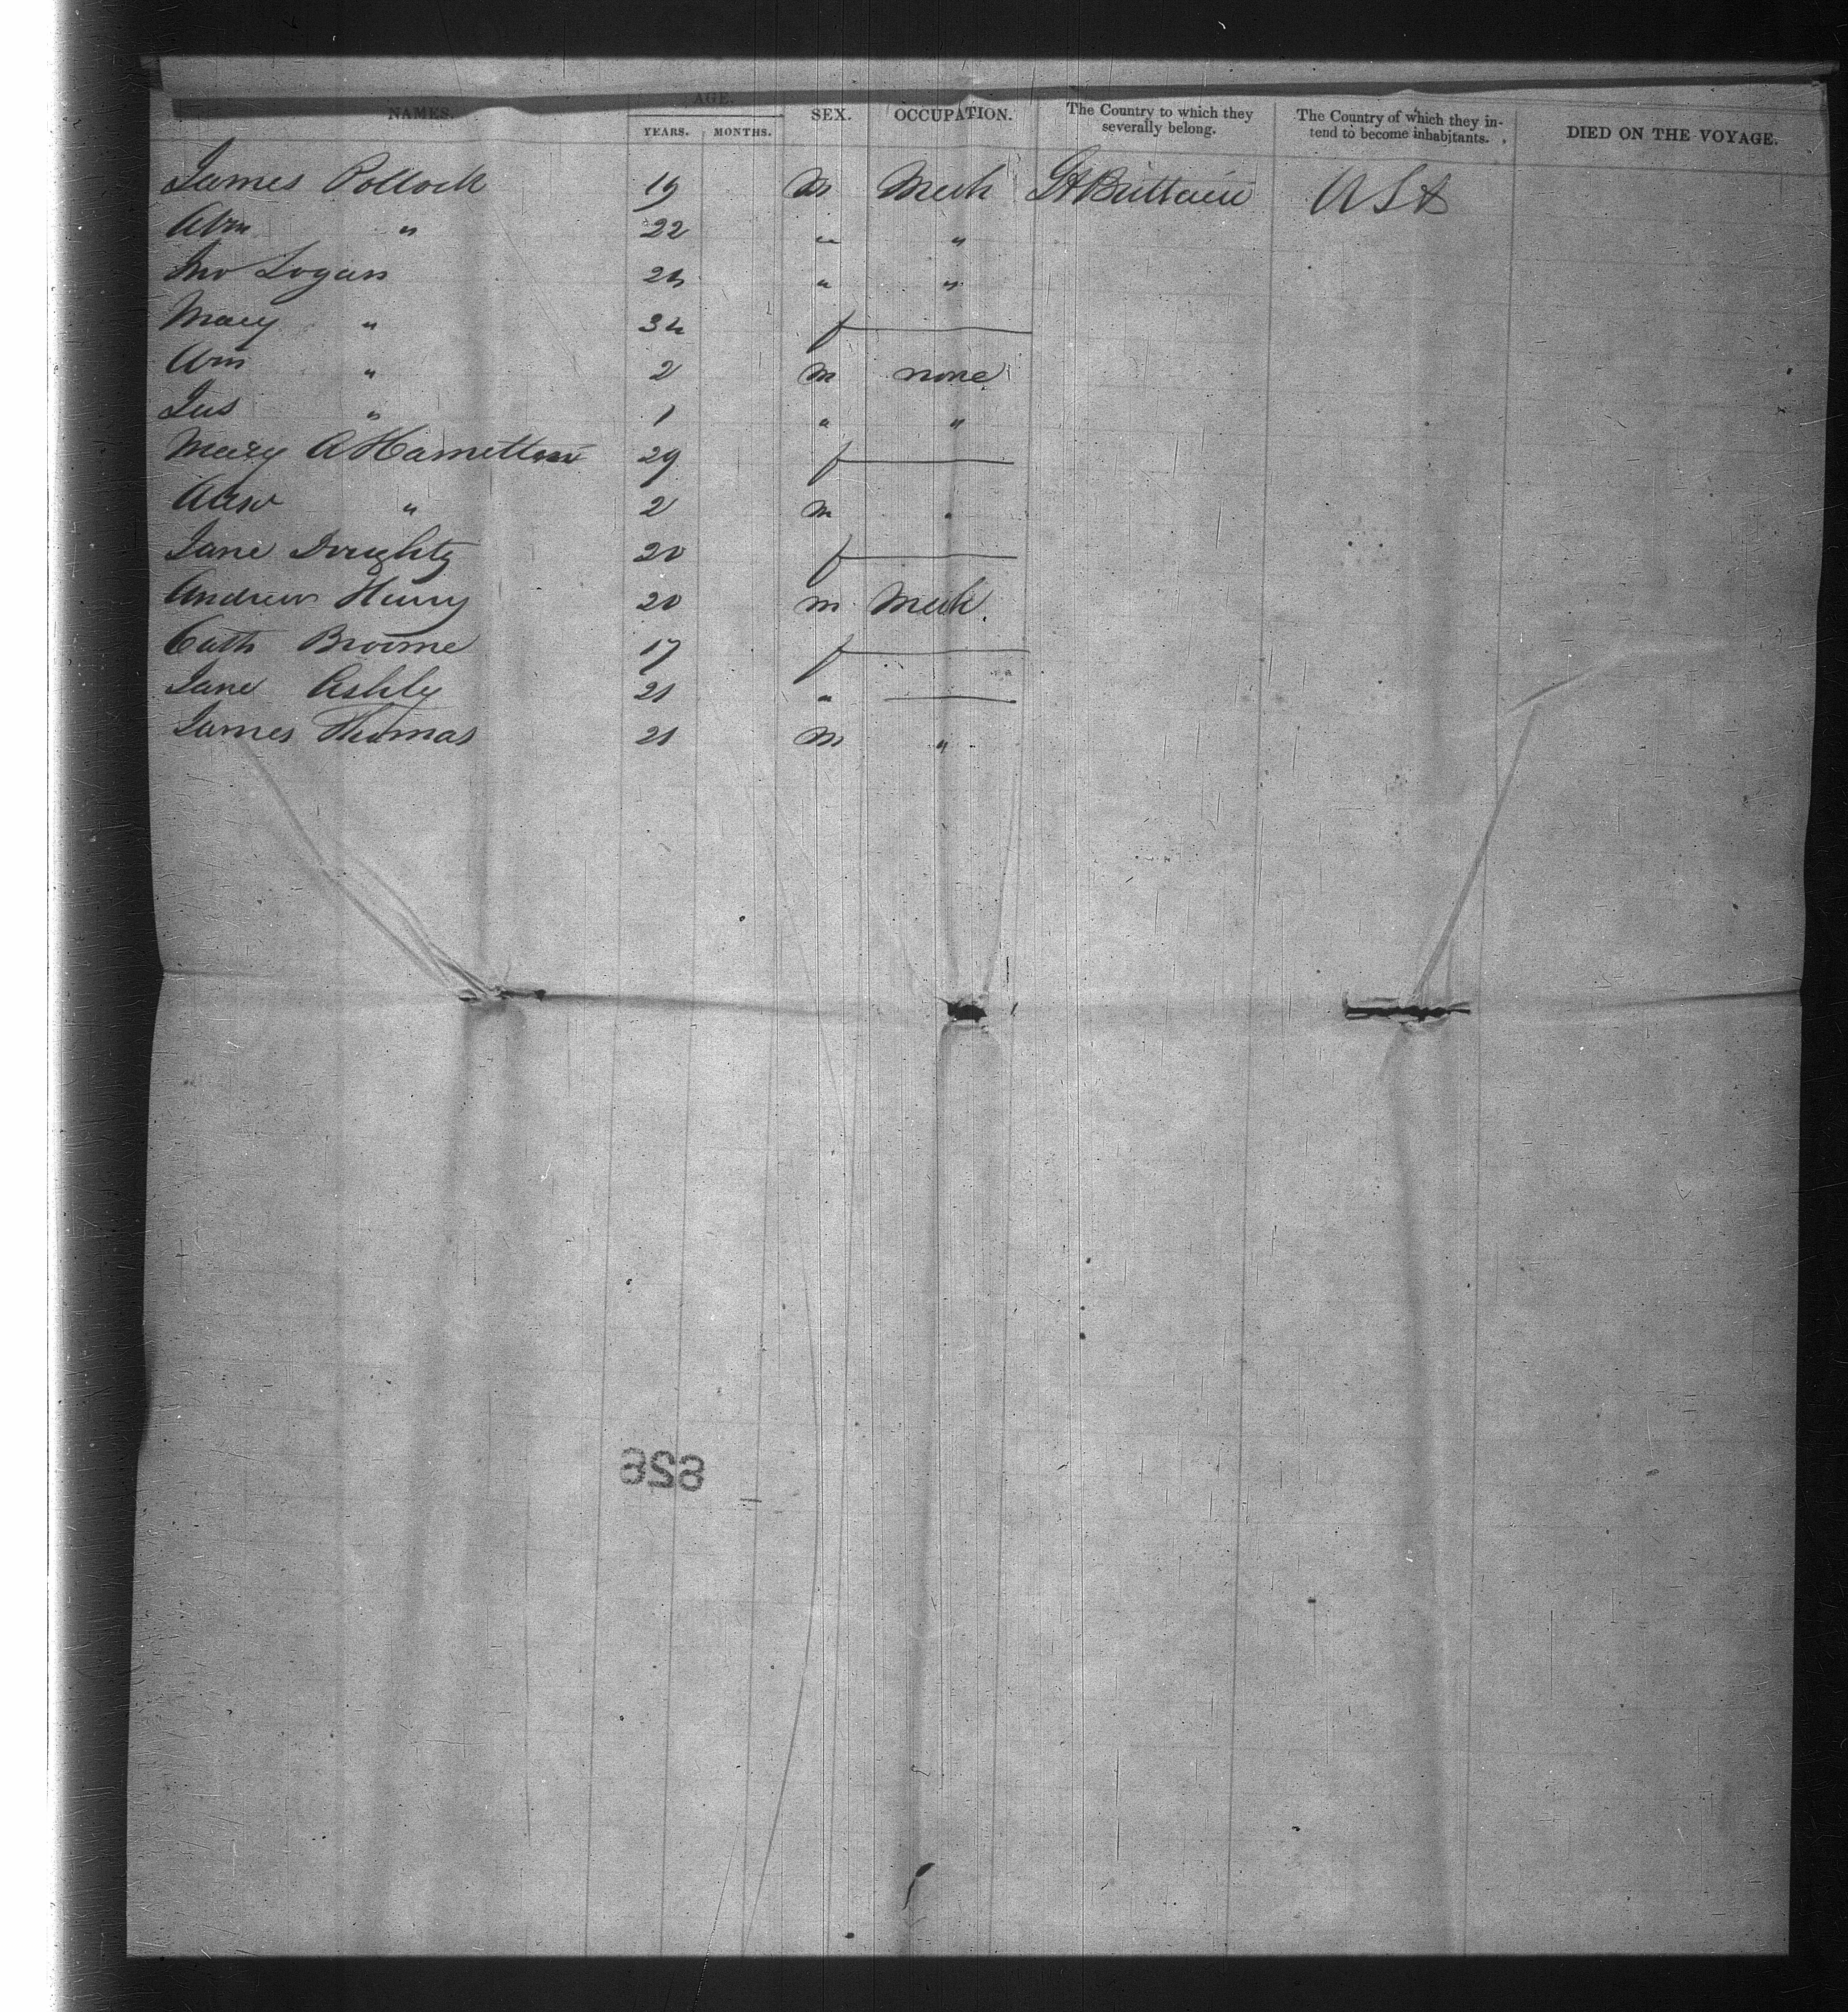 NAMES. AGE. SEX. OCCUPATION. The Country to which they severally belong. The Country of which they intend to become inhabitants. DIED ON THE VOYAGE.
YEARS. MONTHS.
James Pollock 19 m Mech Gt Brittain USA
Wm " 22 " " "
Jno Logan 24 " "
Mary " 34 f
Wm " 2 m none
Jas " 1 " "
Mary A Hamilton 29 f
" 2 m "
Jane Doughty 20 f
Andrew Henry 20 m Mech
Cath Broome 17 f
Jane Ashly 21 "
James Thomas 21 m "
828